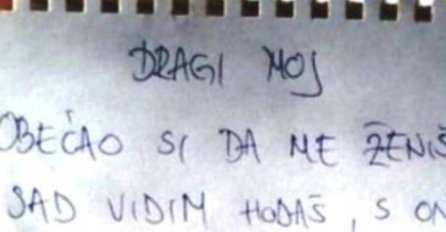 DRAGI MOJ
OBEĆAO SI DA ME ŽENIŠ
SAD VIDIM HODAŠ, S ON